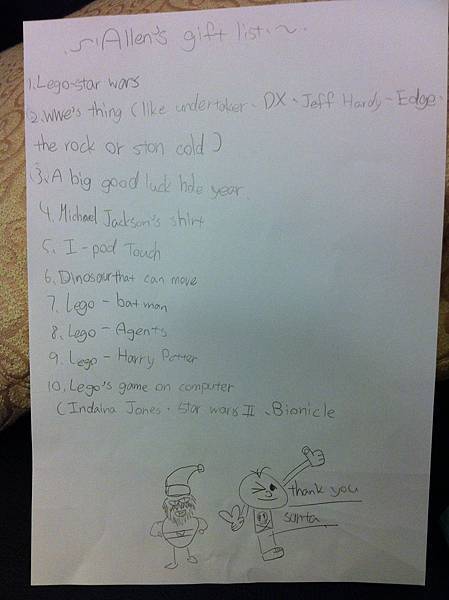 ~Allen's gift list.~
1. Lego-star wars
2. WWE's thing (like undertaker、DX、Jeff Hardy-Edge、
the rock or ston cold)
3. A big good luck hole year
4. Michael Jackson's shirt
5. I-pod Touch
6. Dinosaur that can move
7. Lego - batman
8. Lego - Agents
9. Lego - Harry Potter
10. Lego's game on computer
(Indaina Jones、Star wars II、Bionicle
thank you
santa